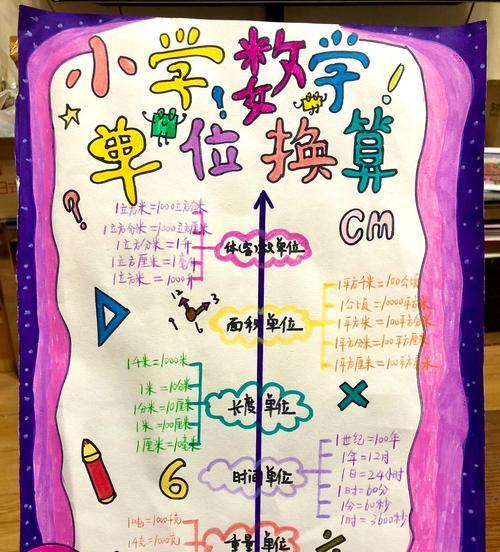 小学数学
单位换算
CM
1立方米=1000立方分米
1立方分米=1000立方厘米
1立方分米=1升
1立方厘米=1毫升
1立方米=1000升
体(容)积单位
12
3
9
6
面积单位
1平方千米=100公顷
1公顷=10000平方米
1平方米=100平方分米
1平方分米=100平方厘米
1平方厘米=100平方毫米
1千米=1000米
1米=10分米
1分米=10厘米
1米=100厘米
1厘米=10毫米
长度单位
6
时间单位
1世纪=100年
1年=12月
1日=24小时
1时=60分
1分=60秒
1时=3600秒
1吨=1000千克
1千克=1000克
重量单位